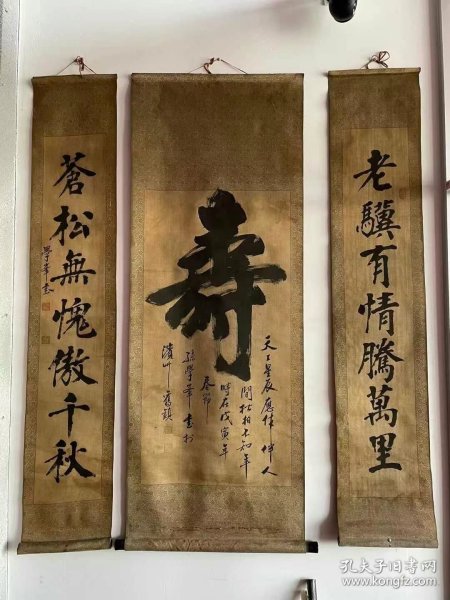 老驥有情騰萬里
壽
天上星辰應作伴人
間松柏不知年
時在戊寅年
春節
孫學峯書於
蒼松無愧傲千秋
學峯書
孔夫子旧书网
www.kongfz.com